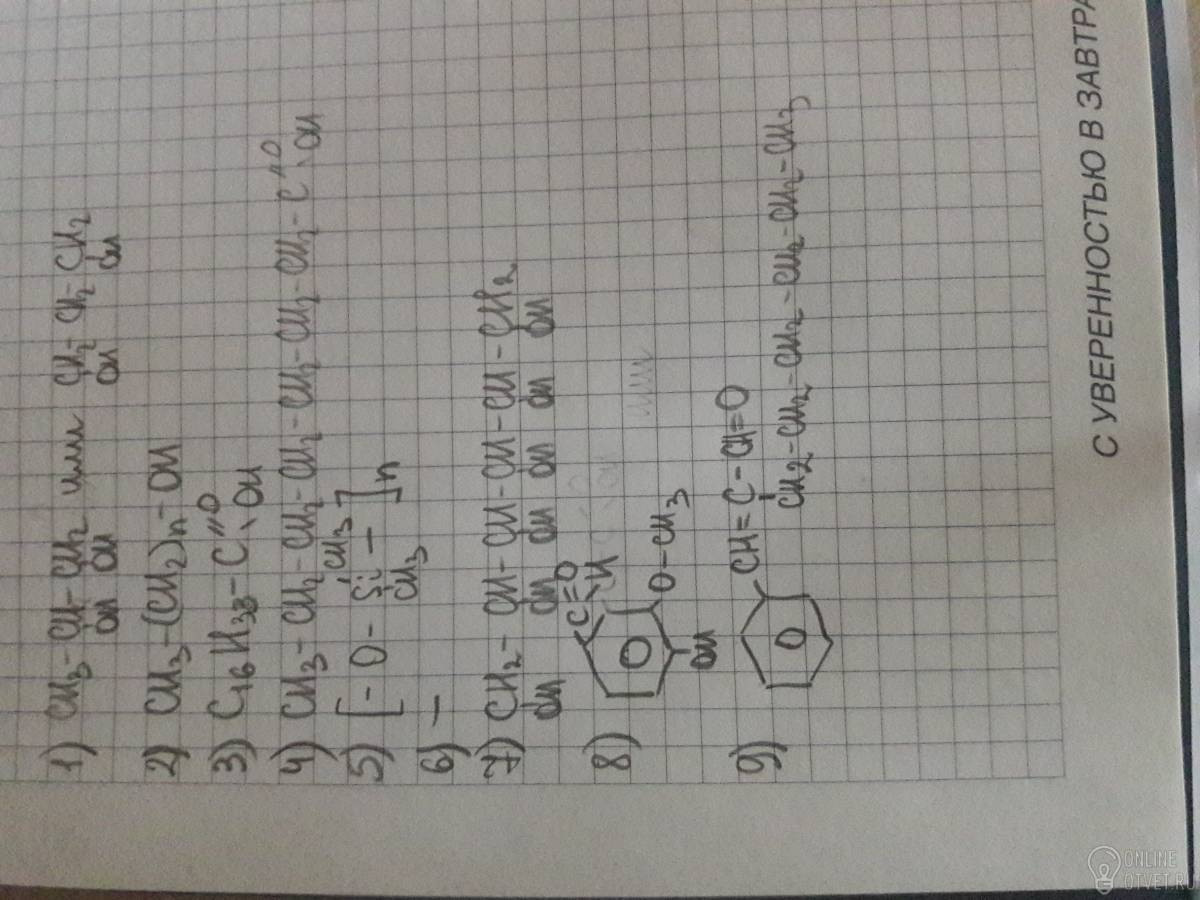 1) CH3-CH-CH2 или CH2-CH2-CH2
OH OH OH OH
2) CH3-(CH2)n-OH
3) C16H33-C=O
OH
4) CH3-CH2-CH2-CH2-CH2-CH2-CH2-CH2-C=O
OH
5) [-O-Si-]n
CH3
CH3
6) -
7) CH2-CH-CH-CH-CH-CH2
OH OH OH OH OH OH
8) C=O
H
O-CH3
OH
9) CH=C-CH=O
CH2-CH2-CH2-CH2-CH2-CH3
С УВЕРЕННОСТЬЮ В ЗАВТРА
ONLINE
OTVET.RU